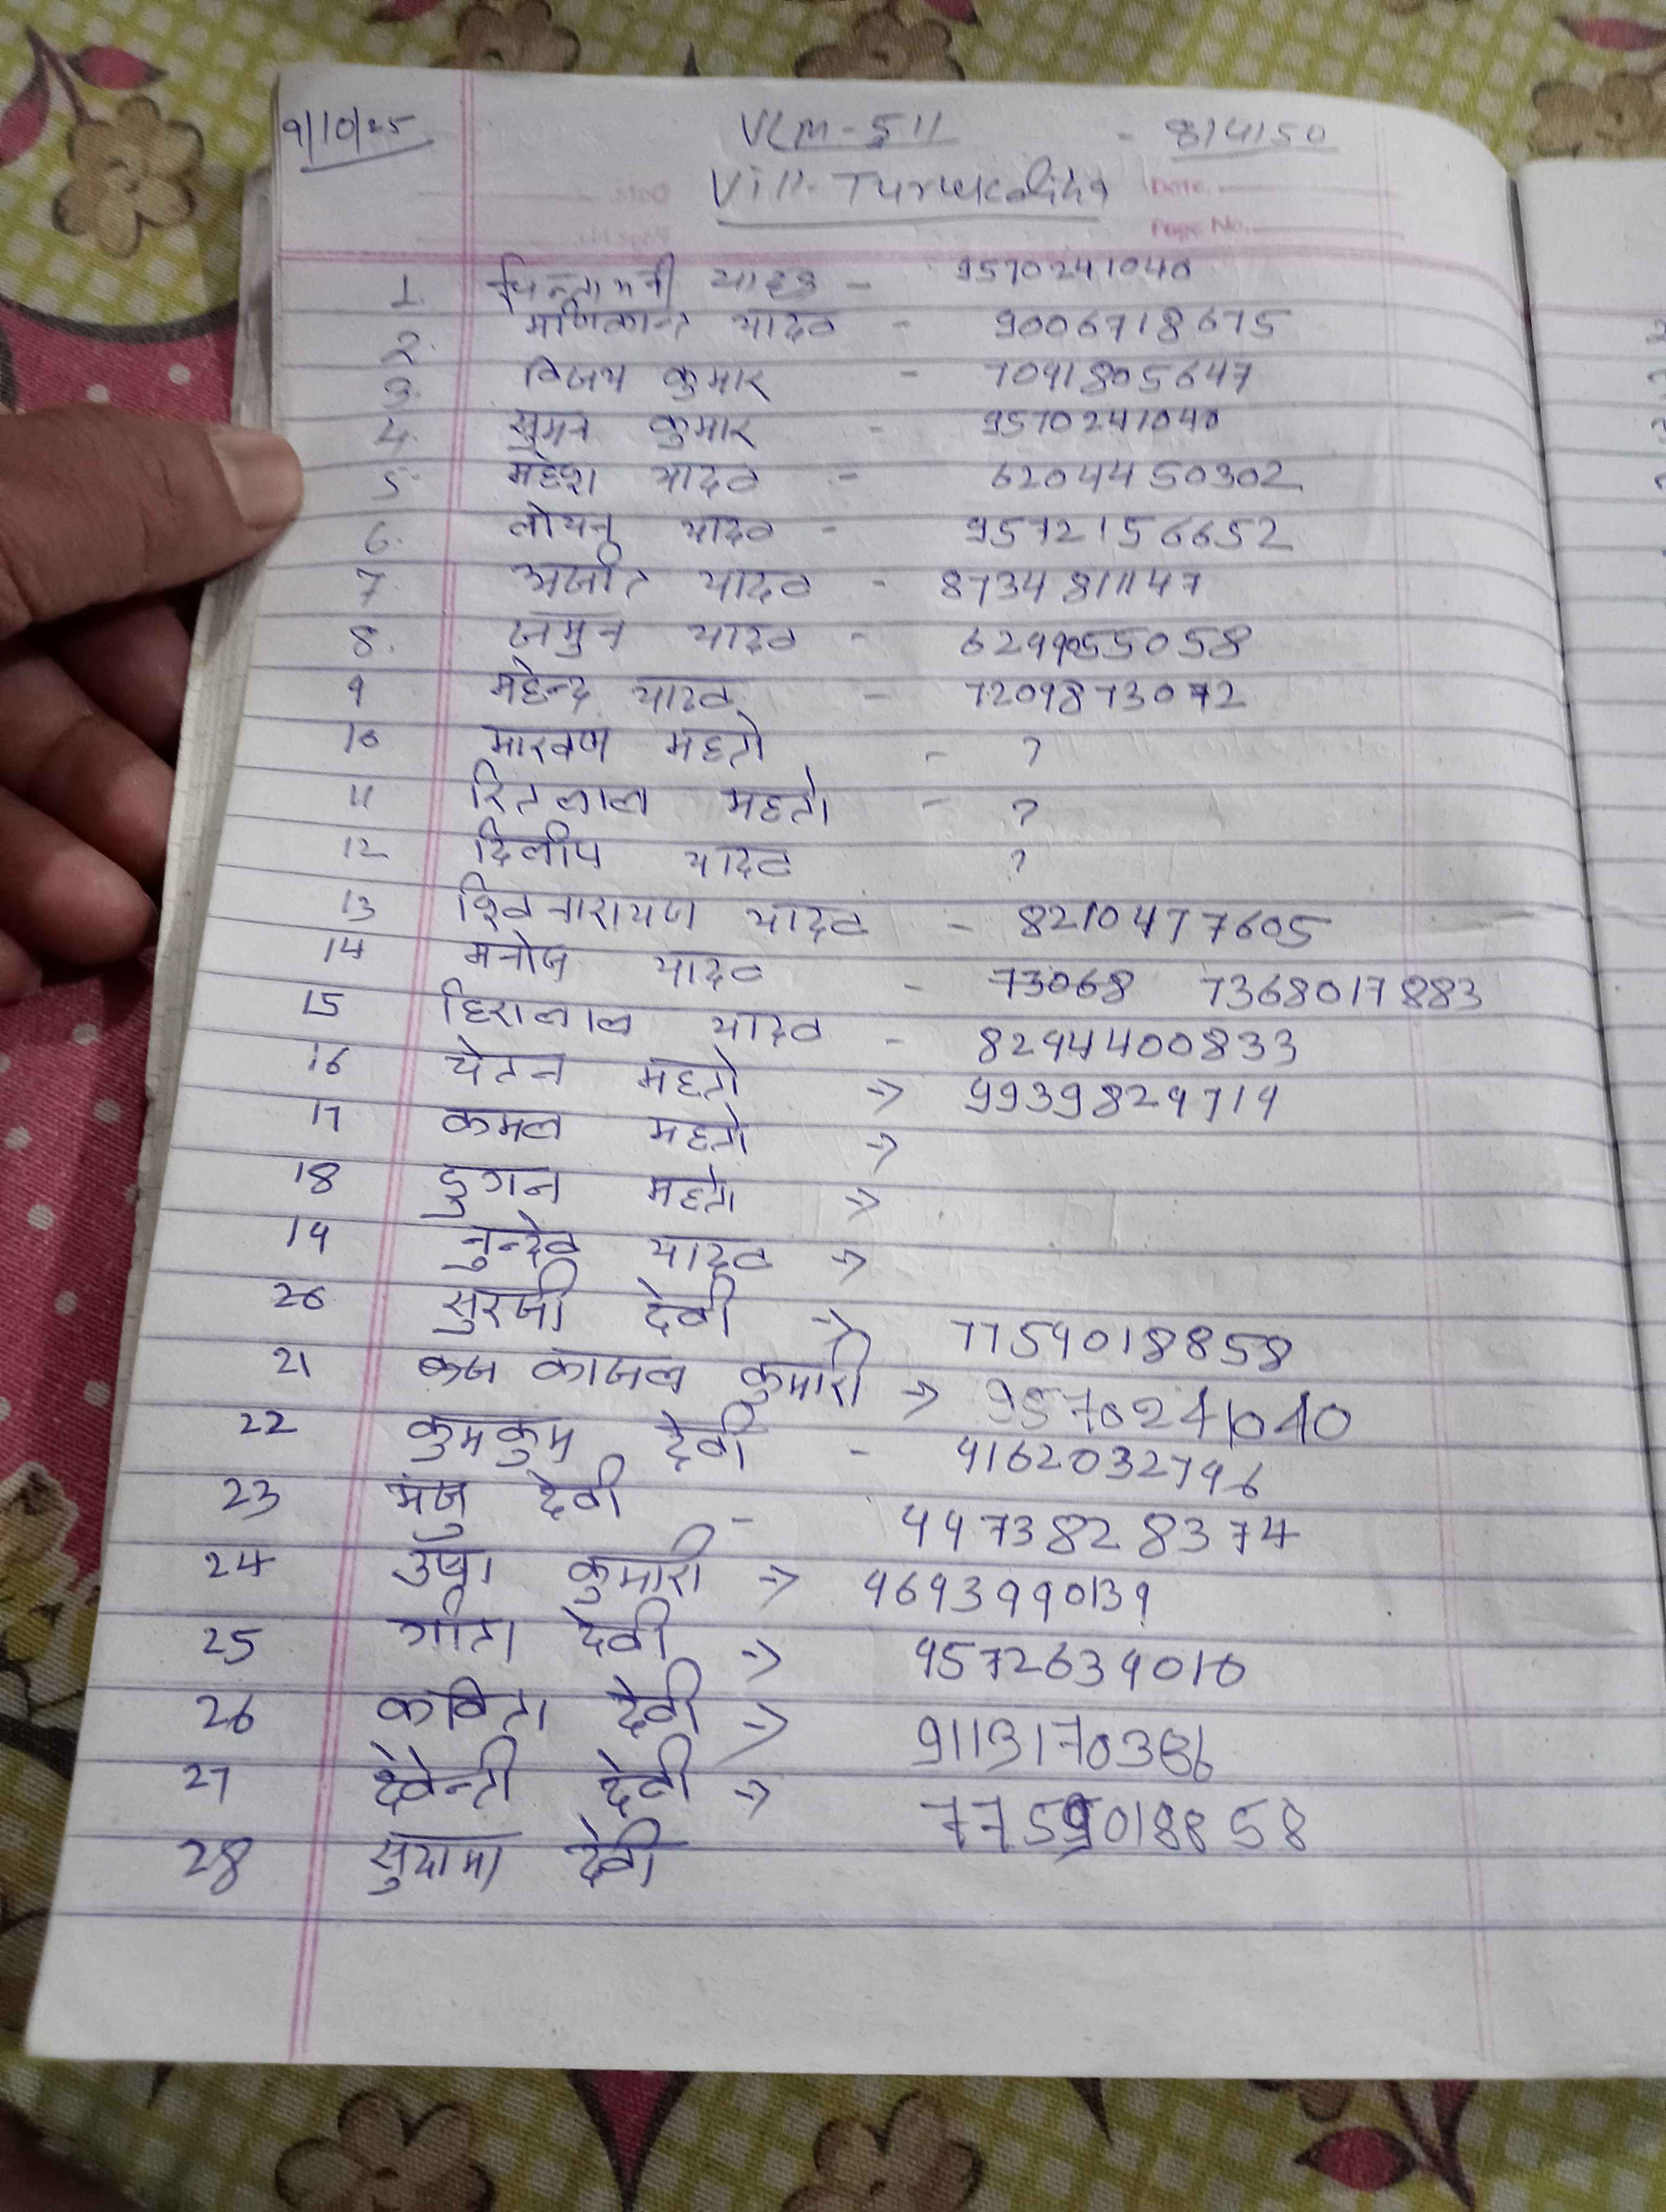 9/10/25 VLM-511 - 814150
Vill- Turukdiha
1. चिन्तामनी यादव - 9570241040
2. मणिकान्त यादव - 9006718675
3. विजय कुमार - 7091805647
4. सुमन कुमार - 9570241040
5. महेश यादव - 6204450302
6. यादव - 9572156652
7. अजीत यादव - 8734811147
8. जमुन यादव -
9 महेन्द्र यादव - 7209873072
10 महतो - ?
11 रितलाल महतो - ?
12 दिलीप यादव ?
13 शिवनारायण यादव - 8210477605
14 मनोज यादव - 73068 7368017883
15 हिरालाल यादव - 8294400833
16 चेतन महतो → 9939829719
17 कमल महतो →
18 डुगन महतो →
19 नुन्देव यादव →
20 सुरजी देवी → 7759018858
21 काजल कुमारी → 9570241040
22 कुमकुम देवी - 9162032796
23 मंजु देवी - 9973828374
24 उषा कुमारी → 9693990139
25 गीता देवी → 9572639010
26 कविता देवी → 9113170366
27 देवेन्ती देवी → 7759018858
28 सुदामा देवी
Date.
Page No.